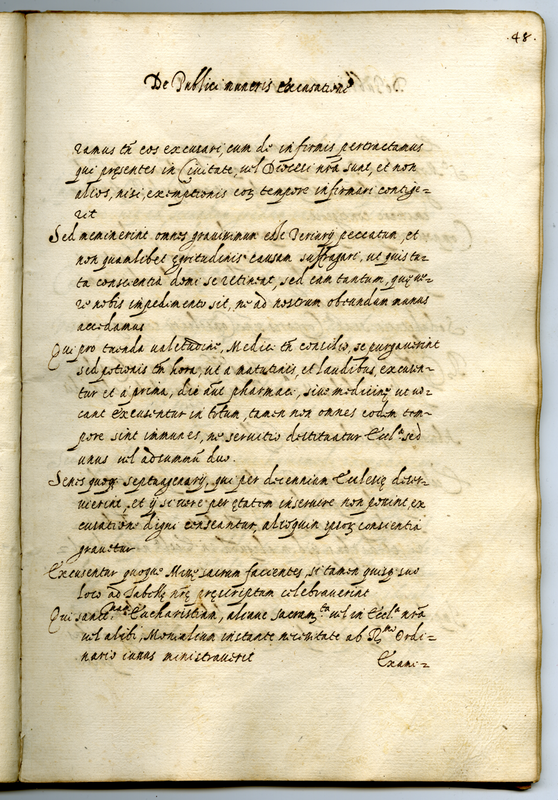 .48.
De Publici muneris excusatione
ramus tñ eos excusari, cum de infirmis pertractamus
qui pręsentes in Civitate, vel Diocesi nrã sunt, et non
alios, nisi, exemptionis eoꝝ tempore infirmari contige=
rit
Sed meminerint omnes gravissimum esse Periurij peccatum, et
non quamlibet ęgritudinis causam suffragari, ut quis tu-
ta conscientia domi se retineat, sed eam tantum, quę ve-
re nobis impedimento sit, ne ad nostrum obeundum munus
accedamus
Qui pro tuenda valetudine, Medici tñ consilio, se purgaverint
sed potionis tñ hora, ut a matutinis, et laudibus, excusen-
tur et a prima, die aut pharmaci, sive medicinę ut vo-
cant excusentur in totum, tamen non omnes eodem tem-
pore sint immunes, ne servitio destituatur Eccl.ª sed
unus vel ad summũ duo.
Senes quoqꝫ septuagenarij, qui per decennium Ecclesię deser-
vierint, et ij si vere per ętatem inservire non possint, ex
cusatione digni censeantur, alioquin ipsoꝝ consientia
gravetur
Excusentur quoque Missę sacrum facientes, si tamen quisqꝫ suo
loco ad Tabellę nrę pręscriptum celebraverint
Qui sanct.mam Eucharistiam, aliave sacram.ta vel in Eccl.ª nrã
vel alibi, Monialium instante necessitate ab R.mo Ordi-
nario iussus ministraverit
Exami=